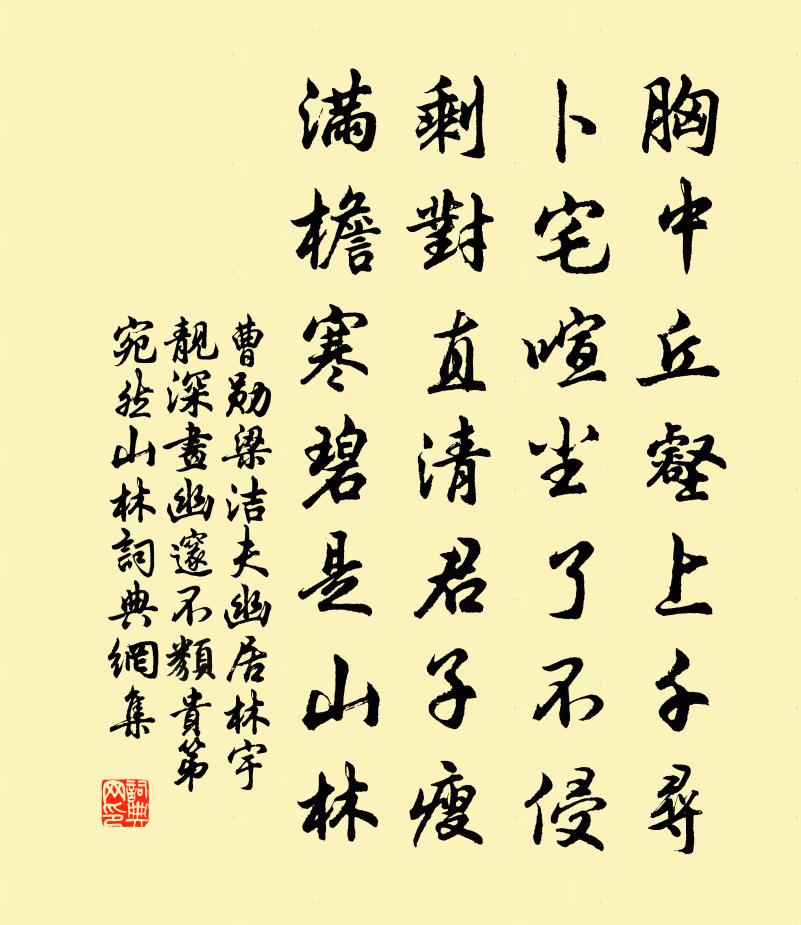 胸中丘壑上千尋
卜宅喧尘了不侵
剩對直清君子瘦
滿檐寒碧是山林
曹勛梁洁夫幽居林宇
靚深晝幽邃不類貴第
宛然山林詞典網集
詞典网印